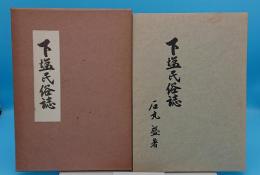 下塩民俗誌
下塩民俗誌
石丸 著